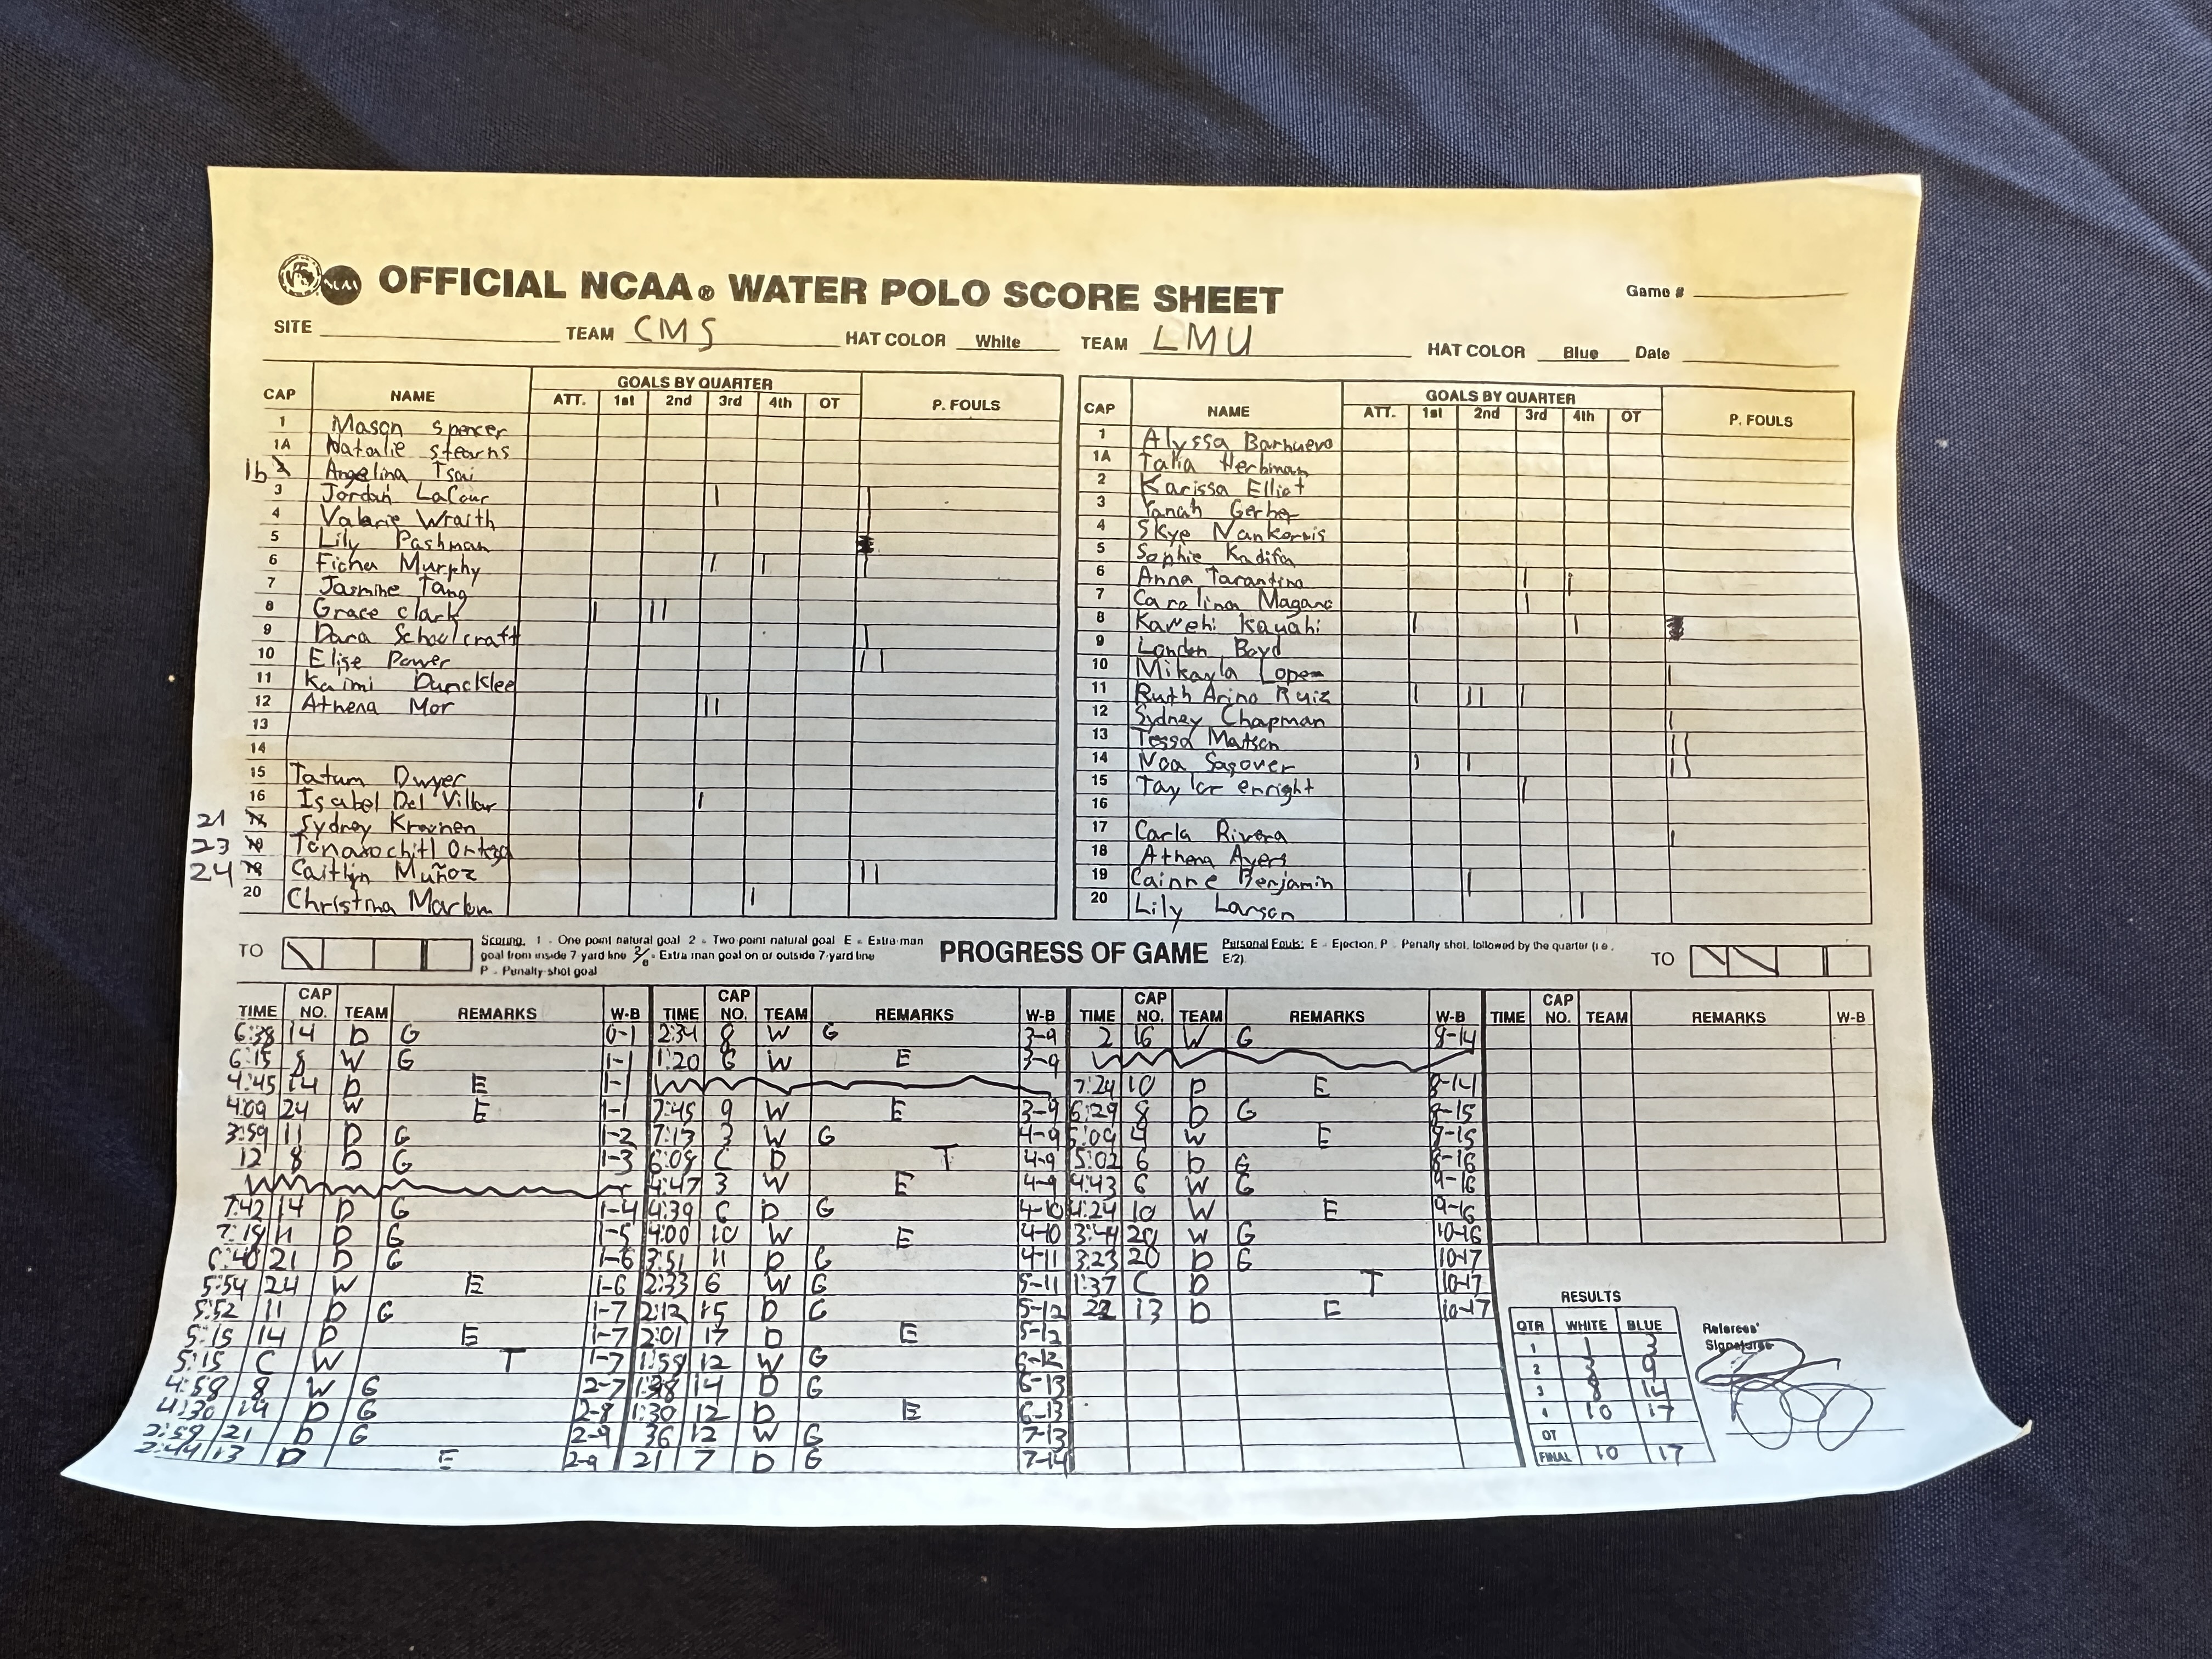 OFFICIAL NCAA® WATER POLO SCORE SHEET
Game #
SITE TEAM CMS HAT COLOR White TEAM LMU HAT COLOR Blue Date
CAP NAME GOALS BY QUARTER P. FOULS
ATT. 1st 2nd 3rd 4th OT
1 Mason Spencer
1A Natalie Stearns
1b Angelina Tsai
3 Jordan LaCour
4 Valerie Wraith
5 Lily Pashman
6 Ficha Murphy
7 Jasmine Tang
8 Grace clark
9 Dara Schoolcraft
10 Elise Power
11 Kaimi Duncklee
12 Athena Mor
13
14
15 Tatum Dwyer
16 Isabel Del Villar
21 Sydney
23 Ortega
24 Caitlin Muñoz
20 Christina
CAP NAME GOALS BY QUARTER P. FOULS
ATT. 1st 2nd 3rd 4th OT
1 Alyssa
1A Talia Herbman
2 Karissa Elliot
3 Yanah Gerber
4 Skye
5 Sophie Kadifa
6 Anna Tarantino
7 Carolina Magano
8 Kanehi Kauahi
9 London Boyd
10 Mikayla
11 Ruth Arino Ruiz
12 Sydney Chapman
13 Tessa Matson
14 Noa Sasover
15 Taylor enright
16
17 Carla Rivera
18 Athena Ayers
19 Benjamin
20 Lily Larson
TO
Scoring. 1 - One point natural goal 2 - Two point natural goal E = Extra-man
goal from inside 7-yard line 2/E = Extra man goal on or outside 7-yard line
P - Penalty-shot goal
PROGRESS OF GAME
Personal Fouls: E - Ejection, P - Penalty shot, followed by the quarter (i.e.
E/2)
TO
TIME CAP NO. TEAM REMARKS W-B
6:38 14 D G 0-1
6:15 8 W G 1-1
4:45 14 D E 1-1
4:09 24 W E 1-1
3:59 11 D G 1-2
12 8 D G 1-3
7:42 14 D G 1-4
7:19 11 D G 1-5
6:40 21 D G 1-6
5:54 24 W E 1-6
5:52 11 D G 1-7
5:15 14 D E 1-7
5:15 C W T 1-7
4:58 8 W G 2-7
4:30 14 D G 2-8
2:59 21 D G 2-9
2:44 13 D E 2-9
TIME CAP NO. TEAM REMARKS W-B
2:34 8 W G 3-9
1:20 6 W E 3-9
7:45 9 W E 3-9
7:13 3 W G 4-9
6:08 C D T 4-9
4:47 3 W E 4-9
4:39 6 D G 4-10
4:00 10 W E 4-10
3:51 11 D G 4-11
2:33 6 W G 5-11
2:12 15 D G 5-12
2:01 17 D E 5-12
1:59 12 W G 6-12
14 D G 6-13
1:30 12 D E 6-13
36 12 W G 7-13
21 7 D G 7-14
TIME CAP NO. TEAM REMARKS W-B
2 16 W G 8-14
7:24 10 D E 8-14
6:29 8 D G 8-15
4 W E 8-15
5:02 6 D G 8-16
4:43 6 W G 9-16
4:24 10 W E 9-16
3:44 20 W G 10-16
3:23 20 D G 10-17
1:37 C D T 10-17
22 13 D E 10-17
TIME CAP NO. TEAM REMARKS W-B
RESULTS
QTR WHITE BLUE
1 1 3
2 3 9
3 8 14
4 10 17
OT
FINAL 10 17
Referees'
Signatures